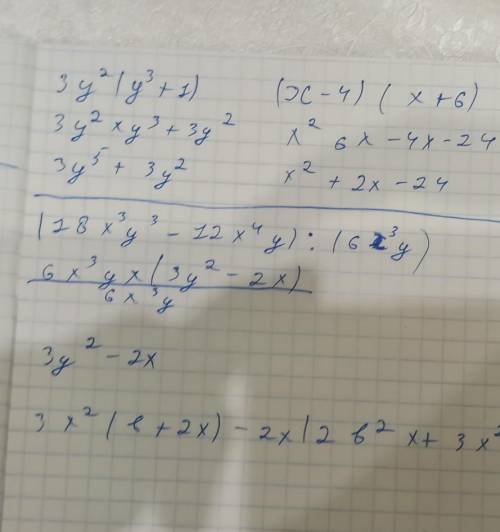 3y²(y³+1) (x-4)(x+6)
3y² × y³ + 3y² x² 6x - 4x - 24
3y⁵ + 3y² x² + 2x - 24
(18x³y³ - 12x⁴y) : (6x³y)
6x³y × (3y² - 2x)
6x³y
3y² - 2x
3x²(в + 2x) - 2x(2в²x + 3x²